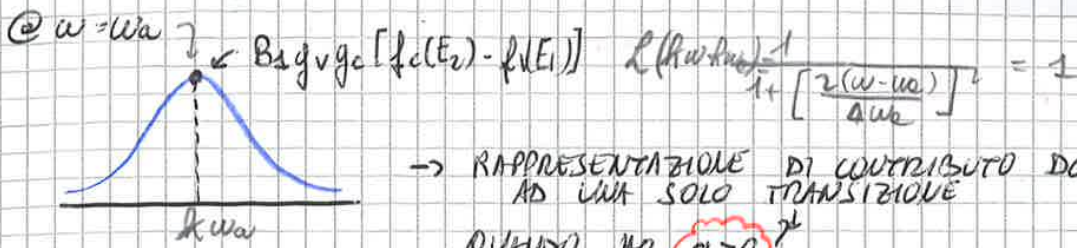 @ ω=ωa
B21 gv gc [fc(E2) - fv(E1)] L(ħω-ħωa) = 1 / (1+[2(ω-ωa)/Δωa]²) = 1
→ RAPPRESENTAZIONE DI CONTRIBUTO DO
AD UNA SOLO TRANSIZIONE
ħωa
QUANDO